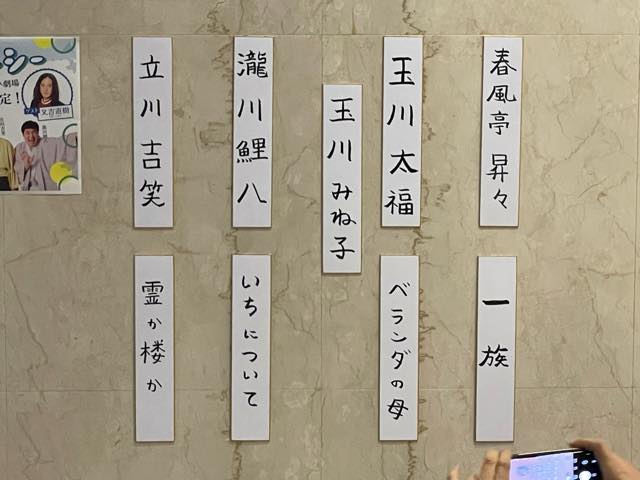 春風亭 昇々
一族
玉川 太福
玉川 みね子
ベランダの母
瀧川 鯉八
いちについて
立川 吉笑
霊か楼か
シー
劇場
定!
又吉直樹